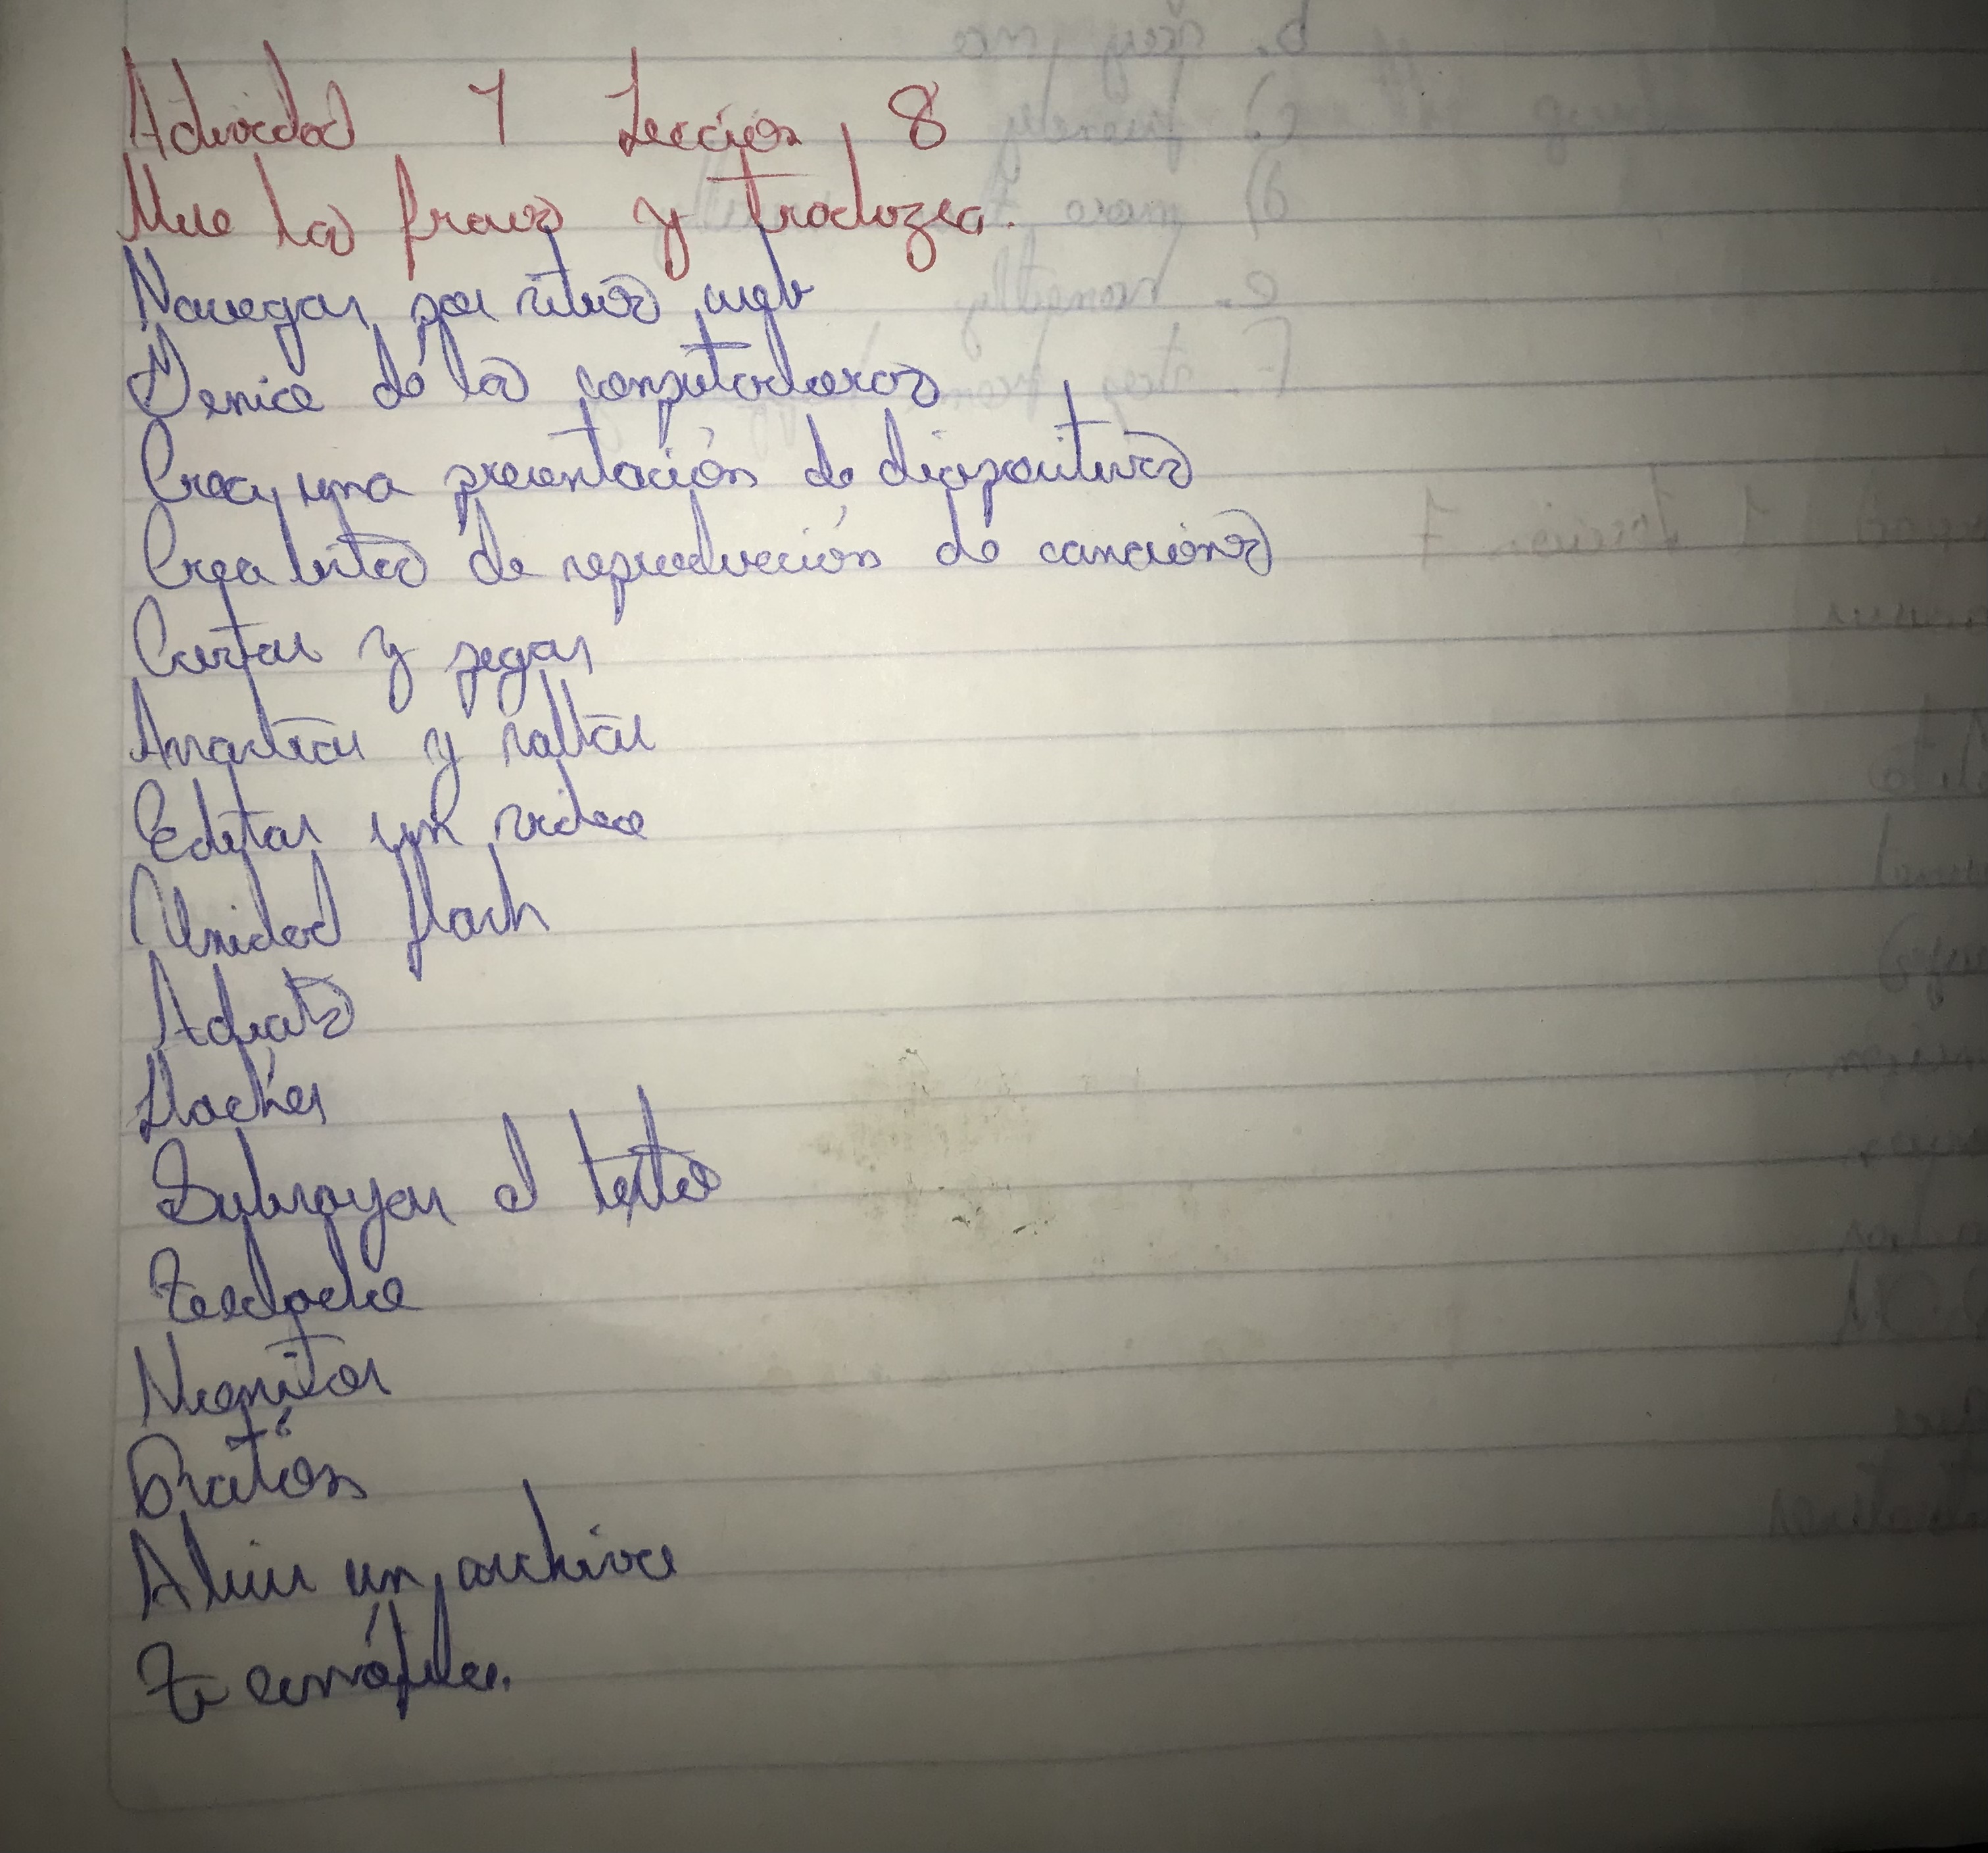 Actividad 1 Lección 8
Mire las frases y traduzca.
Navegar por sitios web
de las computadoras
Crear una presentación de diapositivas
Crea listas de reproducción de canciones
Cortar y pegar
Arrastrar y soltar
Editar un video
Unidad flash
Subrayar el texto
Teclado
Monitor
Ratón
Abrir un archivo